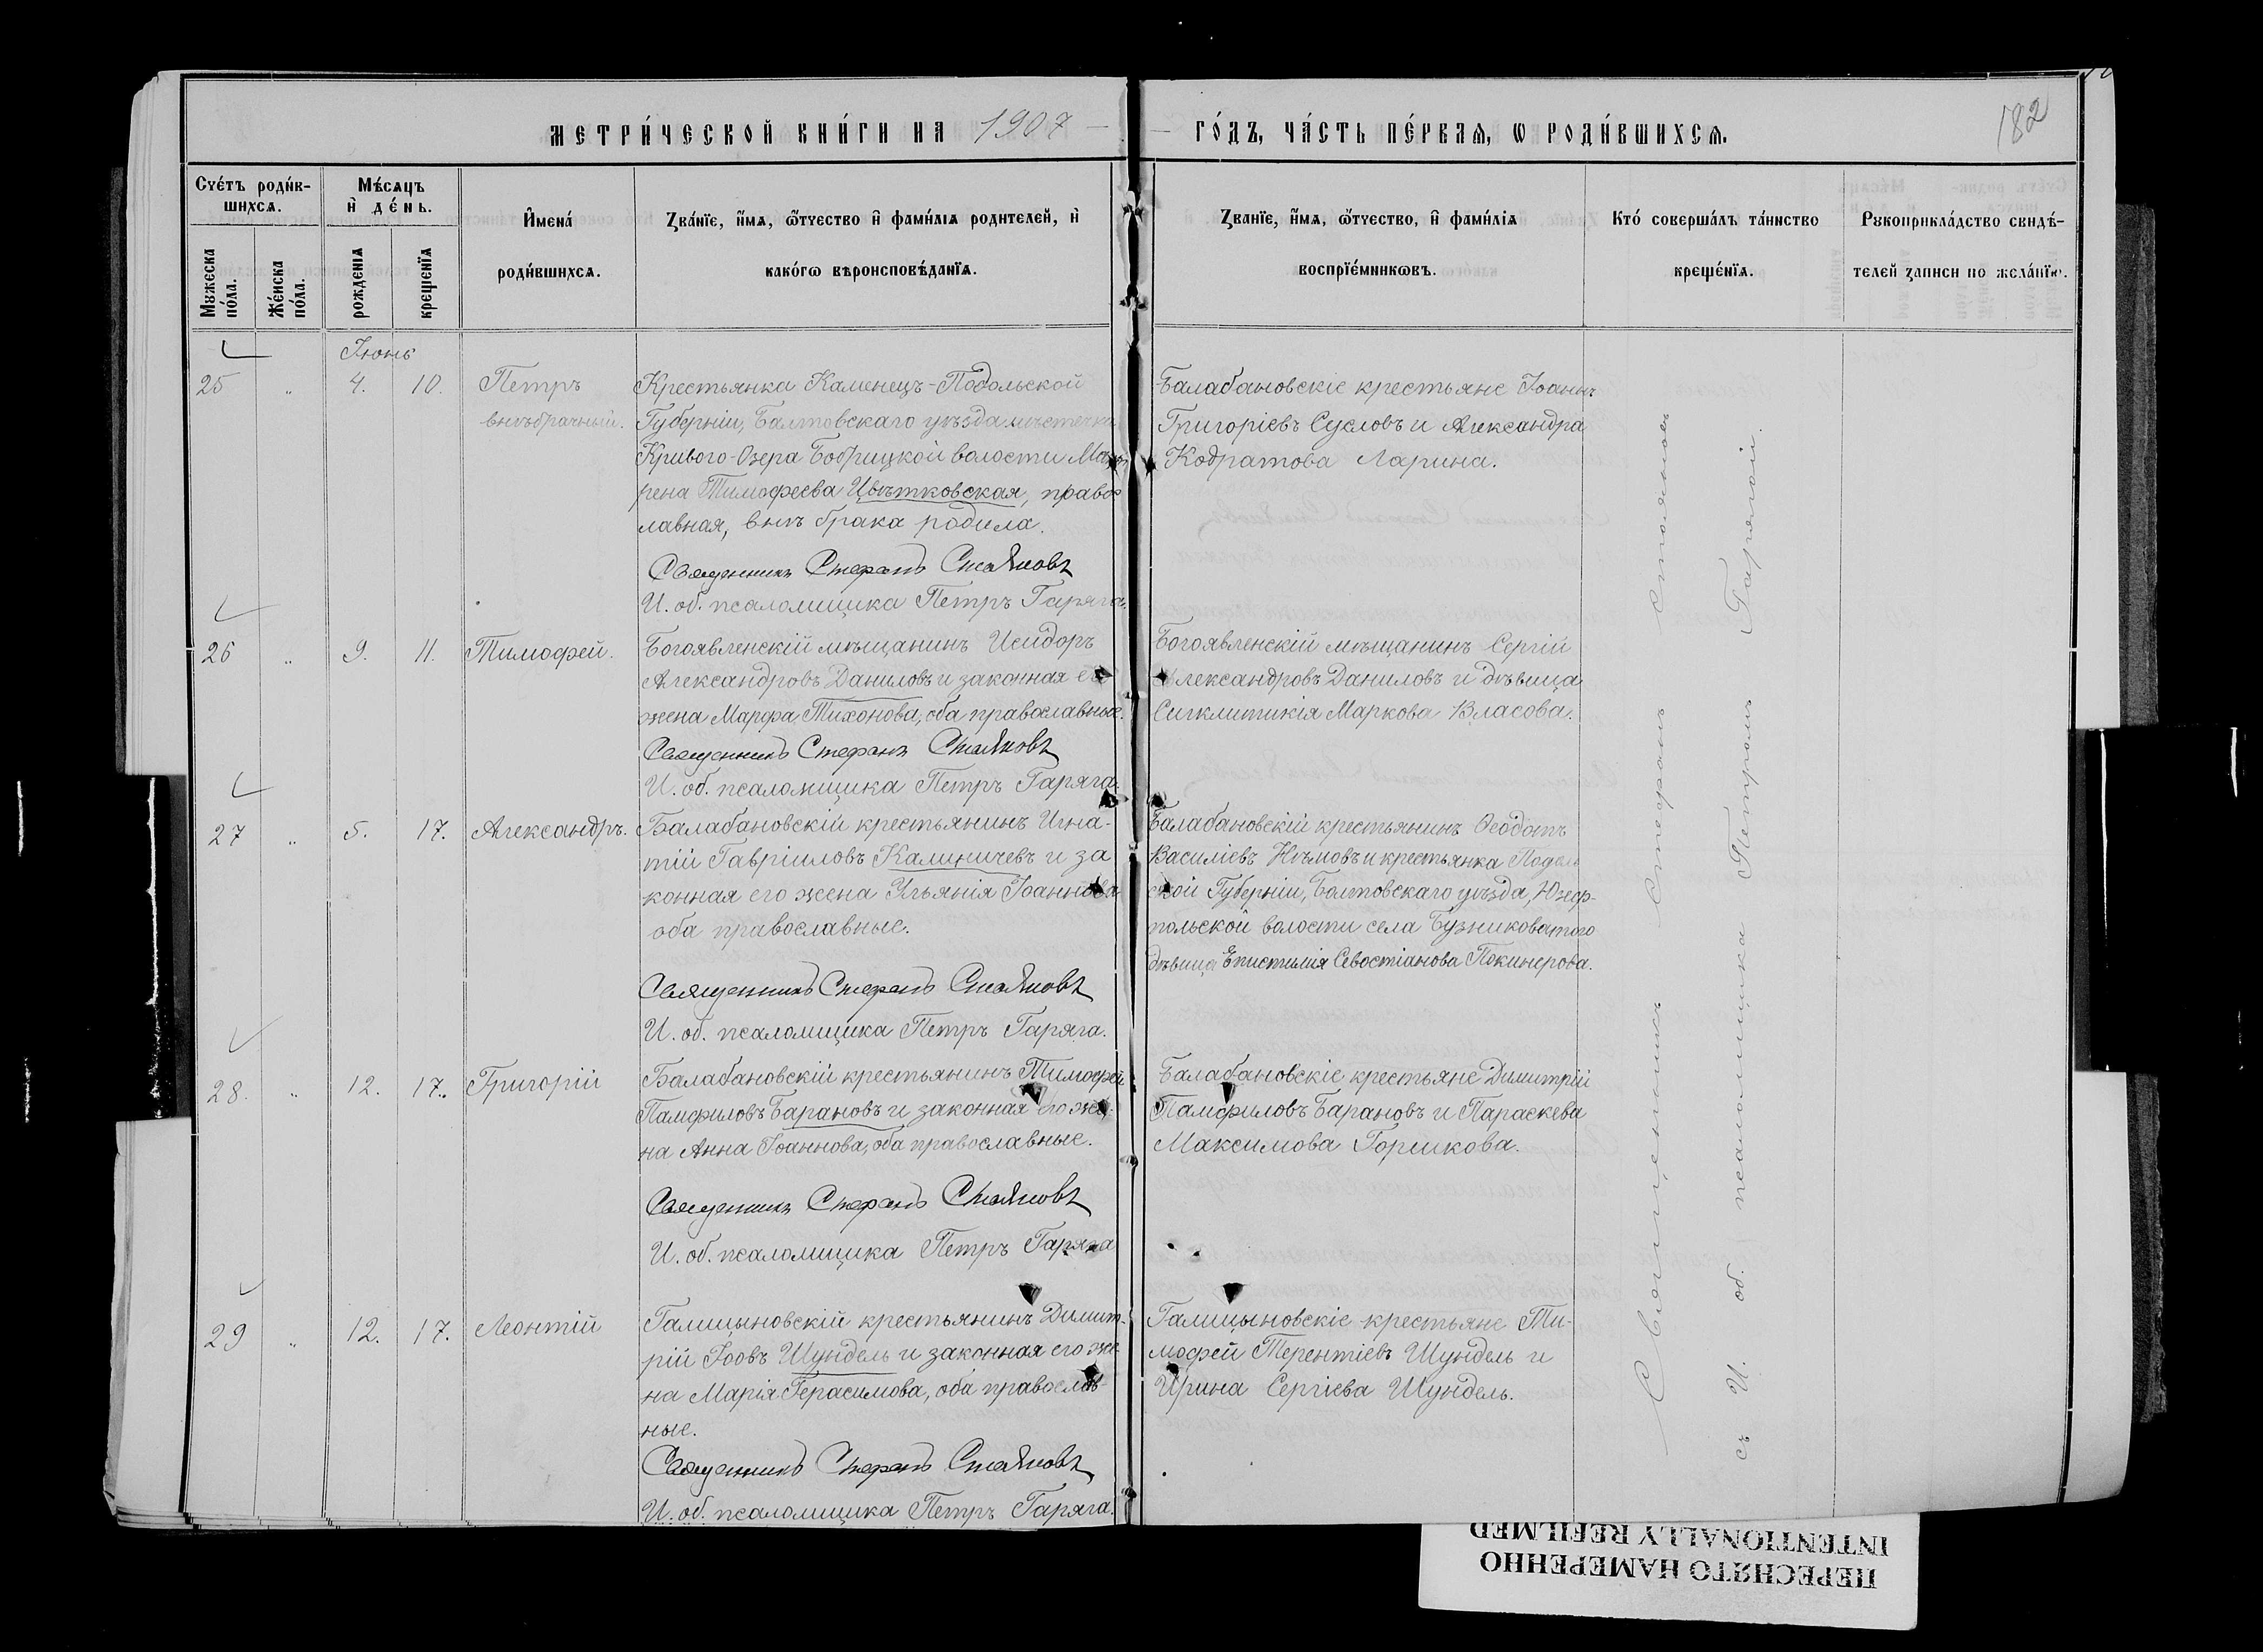 МЕТРИ́ЧЕСКОЙ КНИ́ГИ НА 1907 —
— ГО́ДЪ, ЧА́СТЬ ПЕ́РВАѦ, Ѡ РОДИ́ВШИХСѦ.
182
Сче́тъ роди́в-
шихсѧ.
Мꙋжеска
по́ла.
Же́нска
по́ла.
Мѣ́сѧцъ
и҆ де́нь.
рожденїѧ
крещенїѧ
И҆мена́
роди́вшихсѧ.
Зва́нїе, и҆́мѧ, ѻ҆́тчество и҆ фами́лїѧ родителей, и҆
како́гѡ вѣроисповѣ́данїѧ.
Зва́нїе, и҆́мѧ, ѻ҆́тчество, и҆ фами́лїѧ
воспрїе́мникѡвъ.
Кто̀ соверша́лъ та́инство
креще́нїѧ.
Рꙋкоприкла́дство свидѣ́-
телей записи по жела́нїю.
Іюнь
25 „ 4. 10. Петръ
внѣбрачный.
Крестьянка Каменецъ-Подольской
Губерніи, Балтовскаго уѣзда мѣстечка
Кривого-Озера Бобрицкой волости Мат-
рена Тимофеева Цвѣтковская, право-
лавная, внѣ брака родила.
Священникъ Стефанъ Стояновъ
И. об. псаломщика Петръ Гаряга.
Балабановскіе крестьяне Іоаннъ
Григоріевъ Сусловъ и Александра
Кодратова Ларина.
26 „ 9. 11. Тимофей.
Богоявленскій мѣщанинъ Исидоръ
Александровъ Даниловъ и законная его
жена Марфа Тихонова, оба православные.
Священникъ Стефанъ Стояновъ
И. об. псаломщика Петръ Гаряга.
Богоявленскій мѣщанинъ Сергій
Александровъ Даниловъ и дѣвица
Сигклитикія Маркова Власова.
27 „ 5. 17. Александръ.
Балабановскій крестьянинъ Игна-
тій Гавріиловъ Калиничевъ и за
конная его жена Ульянія Іоаннова
оба православные.
Священникъ Стефанъ Стояновъ
И. об. псаломщика Петръ Гаряга.
Балабановскій крестьянинъ Ѳеодотъ
Василіевъ Нѣмовъ и крестьянка Подоль
ской Губерніи, Балтовскаго уѣзда, Юзеф-
польской волости села Бузниковатого
дѣвица Епистимія Севостіанова Покинерова.
28. „ 12. 17. Григорій
Балабановскій крестьянинъ Тимофей
Памфиловъ Барановъ и законная его же-
на Анна Іоаннова, оба православные.
Священникъ Стефанъ Стояновъ
И. об. псаломщика Петръ Гаряга
Балабановскіе крестьяне Димитрій
Памфиловъ Барановъ и Параскева
Максимова Горшкова.
29 „ 12. 17. Леонтій
Галицыновскій крестьянинъ Димит-
рій Іовъ Шундель и законная его же
на Марія Герасимова, оба православ-
ные.
Священникъ Стефанъ Стояновъ
И. об. псаломщика Петръ Гаряга.
Галицыновскіе крестьяне Ти-
мофей Терентіевъ Шундель и
Ирина Сергіева Шундель.
Священникъ Стефанъ Стояновъ
съ И. об. псаломщика Петромъ Гарягой.
ПЕРЕСНЯТО НАМЕРЕННО
INTENTIONALLY REFILMED